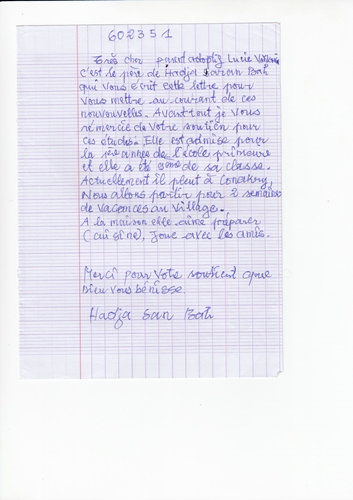 602351
Très cher parent adoptif Lucie
c'est le père de Hadja Saran Bah
qui vous ecrit cette lettre pour
vous mettre au courant de ces
nouvouvelles. Avant tout je vous
rémercie de votre soutien pour
ces études. Elle est admise pour
la 1ère année de l'école primaire
et elle a été 9ème de sa classe.
Actuellement il pleut à Conakry,
Nous allons partir pour 2 semaines
de vacances au village.
A la maison elle aime préparer
(cuisine), Joue avec les amis.
Merci pour votre soutient que
Dieu vous bénisse.
Hadja San Bah